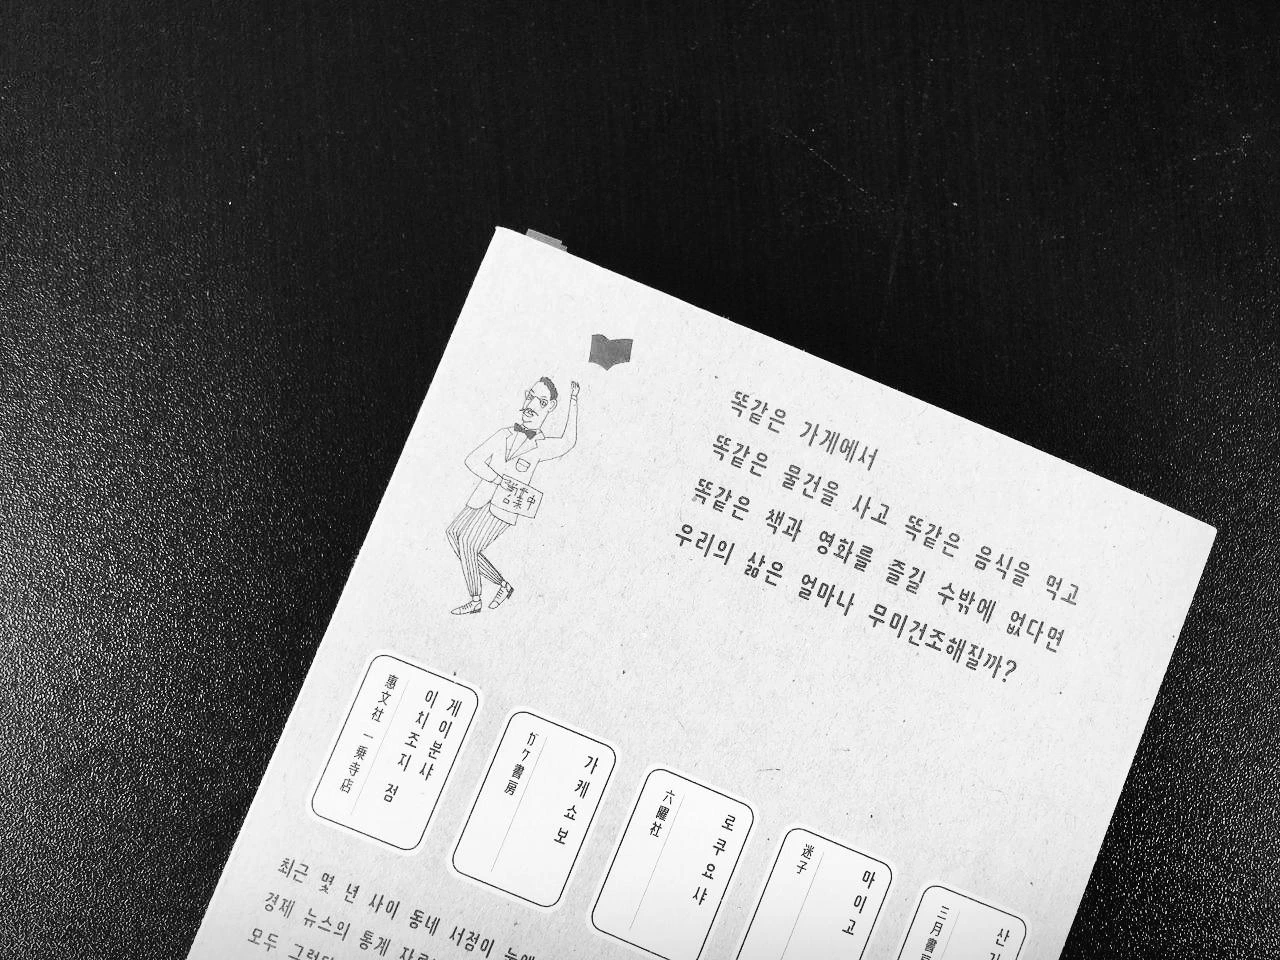 똑같은 가게에서
똑같은 물건을 사고 똑같은 음식을 먹고
똑같은 책과 영화를 즐길 수밖에 없다면
우리의 삶은 얼마나 무미건조해질까?
営業中
게이분샤
이치조지 점
惠文社 一乗寺店
가케쇼보
ガケ書房
로쿠요샤
六曜社
마이고
迷子
산
三月書
최근 몇 년 사이 동네 서점이
경제 뉴스의 통계
모두